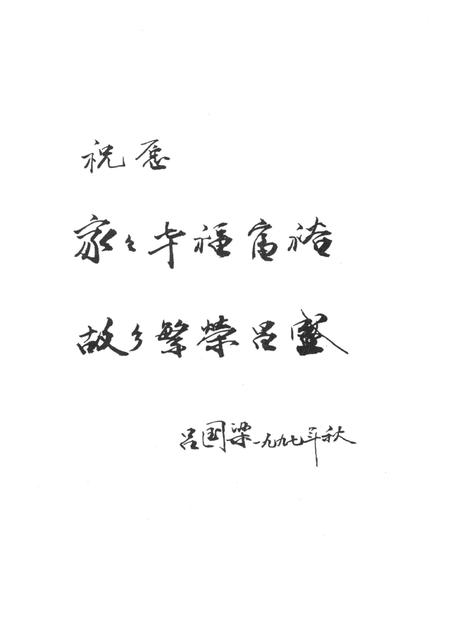 祝愿
家々幸福富裕
故乡繁榮昌盛
吕国梁一九九七年秋